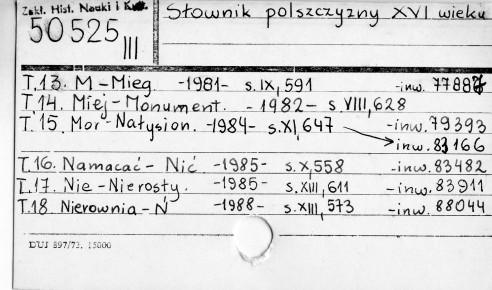 Zakł. Hist. Nauki i Kult.
50525 III
Słownik polszczyzny XVI wieku
T.13. M-Mieg. -1981- s.IX,591 -inw.77887
T.14. Miej-Monument. -1982- s.VIII,628
T.15. Mor-Natysion. -1984- s.XI,647 -inw.79393
inw.83166
T.16. Namacać-Nić -1985- s.X,558 -inw.83482
T.17. Nie-Nierosty. -1985- s.XIII,611 -inw.83911
T.18. Nierownia-Ń -1988- s.XIII,573 -inw.88044
DUJ 897/73. 15000